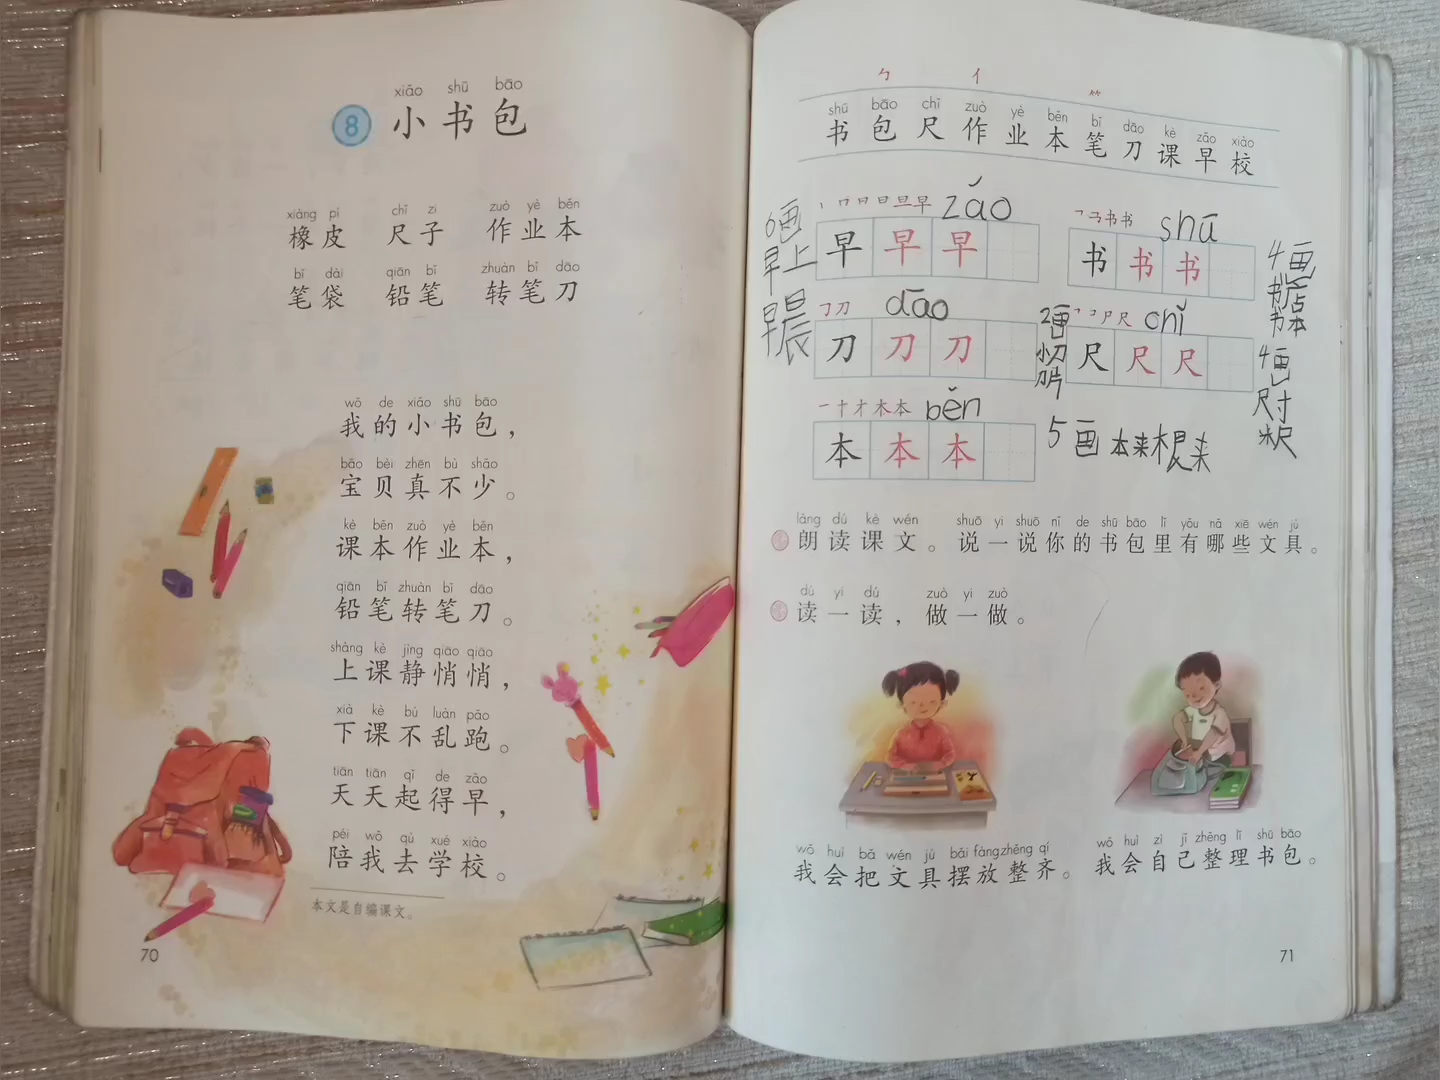 xiǎo shū bāo
8 小书包
xiàng pí chǐ zi zuò yè běn
橡皮 尺子 作业本
bǐ dài qiān bǐ zhuàn bǐ dāo
笔袋 铅笔 转笔刀
wǒ de xiǎo shū bāo
我的小书包，
bǎo bèi zhēn bù shǎo
宝贝真不少。
kè běn zuò yè běn
课本作业本，
qiān bǐ zhuàn bǐ dāo
铅笔转笔刀。
shàng kè jìng qiāo qiāo
上课静悄悄，
xià kè bú luàn pǎo
下课不乱跑。
tiān tiān qǐ de zǎo
天天起得早，
péi wǒ qù xué xiào
陪我去学校。
本文是自编课文。
70
勹 亻 ⺮
shū bāo chǐ zuò yè běn bǐ dāo kè zǎo xiào
书包尺作业本笔刀课早校
6画 zǎo
早上 早 早 早
早晨
shū
书 书 书
4画
书店
书本
dāo
刀 刀 刀
2画
小刀
刀片
chǐ
尺 尺 尺
4画
尺寸
米尺
běn
本 本 本
5画 本来 根本
lǎng dú kè wén shuō yi shuō nǐ de shū bāo lǐ yǒu nǎ xiē wén jù
朗读课文。说一说你的书包里有哪些文具。
dú yi dú zuò yi zuò
读一读，做一做。
wǒ huì bǎ wén jù bǎi fàng zhěng qí
我会把文具摆放整齐。
wǒ huì zì jǐ zhěng lǐ shū bāo
我会自己整理书包。
71